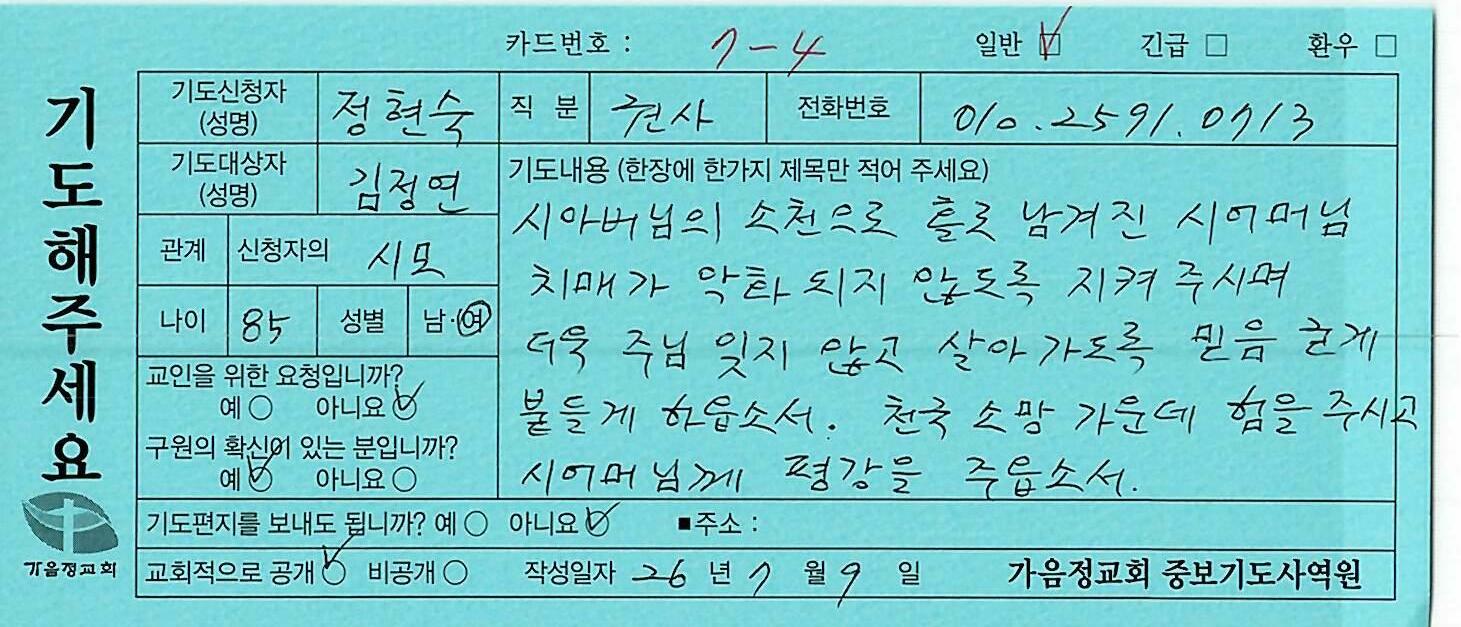 카드번호 : 7-4 일반 ☑ 긴급 □ 환우 □
기도해주세요
기도신청자 (성명) 정현숙 직 분 권사 전화번호 010.2591.0713
기도대상자 (성명) 김정연
관계 신청자의 시모
나이 85 성별 남·여
교인을 위한 요청입니까?
예○ 아니요○
구원의 확신이 있는 분입니까?
예○ 아니요○
기도내용 (한장에 한가지 제목만 적어 주세요)
시아버님의 소천으로 홀로 남겨진 시어머님
치매가 악화 되지 않도록 지켜 주시며
더욱 주님 잊지 않고 살아 가도록 믿음 굳게
붙들게 하옵소서. 천국 소망 가운데 힘을 주시고
시어머님께 평강을 주옵소서.
기도편지를 보내도 됩니까? 예○ 아니요○ ■주소 :
교회적으로 공개○ 비공개○ 작성일자 26 년 7 월 9 일 가음정교회 중보기도사역원
가음정교회